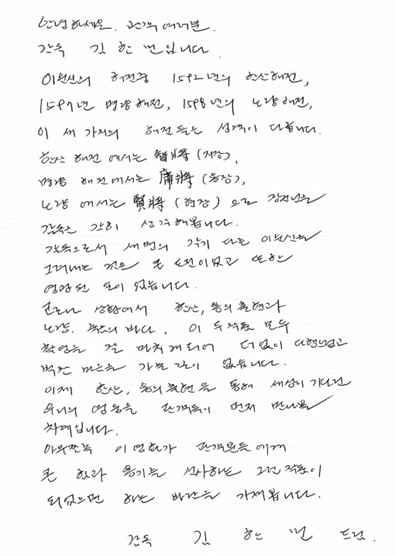 안녕하세요. 관객 여러분.
감독 김한민입니다.
이순신의 해전중 1592년의 한산해전,
1597년 명량해전, 1598년의 노량해전,
이 세 가지의 해전들은 성격이 다릅니다.
한산 해전에서는 智將 (지장),
명량 해전에서는 勇將 (용장),
노량에서는 賢將 (현장) 으로 김한민
감독은 감히 생각해봅니다.
감독으로서 세 명의 각기 다른 이순신을
그려내는 것은 큰 도전이었고 또한
영광된 일이었습니다.
코로나 상황에서 한산: 용의 출현과
노량: 죽음의 바다. 이 두 작품 모두
촬영을 잘 마치게 되어 더없이 다행스럽고
벅찬 마음을 가눌 길이 없습니다.
이제 한산: 용의 출현을 통해 세상이 기다린
우리의 영웅을 관객들이 먼저 만나볼
차례입니다.
아무쪼록 이 영화가 관객분들에게
큰 힘과 용기를 선사하는 그런 작품이
되었으면 하는 바람을 가져봅니다.
감독 김 한 민 드림.